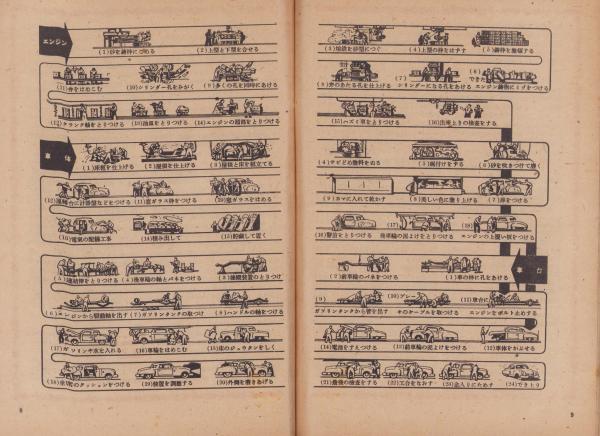 エンジン
(1)砂を鋳枠につめる
(2)上型と下型を合せる
(3)熔鉄を砂型につぐ
(4)上型の枠をはずす
(5)鋳枠を
(6)できたエンジン鋳物にミゾをつける
(7)シリンダーになる孔をあける
(8)弁のあたる孔を仕上げる
(9)多くの孔を同時にあける
(10)シリンダー孔をみがく
(11)弁をはめこむ
(12)クランク軸をとりつける
(13)油皿をとりつける
(14)エンジンの
(15)ハズミ車をとりつける
(16)出来上りの検査をする
車体
(1)床板を仕上げる
(2)屋根を仕上げる
(3)屋根と床を組立てる
(4)サビどめ塗料をぬる
(5)をする
(6)砂を吹きつけて磨く
(7)扉をつける
(8)美しい色に塗り上げる
(9)カマに入れて乾かす
(10)電気の配線工事
(11)窓ガラス枠をつける
(12)計器盤などをつける
(13)貯蔵して置く
(14)積み出して
(16)警笛をとりつける
(17)後車輪の泥よけをとりつける
(18)エンジンの上覆い板をつける
(20)窓ガラスをはめる
車台
(1)車の枠に孔をあける
(2)前車輪のバネをつける
(3)装置のとりつけ
(4)後車輪の軸とバネをつける
(5)連結棒をとりつける
(6)エンジンから駆動軸を出す
(7)ガソリンタンクの取つけ
(8)ハンドルの軸をつける
(9)ガソリンタンクから管を出す
(10)ブレーキのケーブルを取つける
(11)車台にエンジンをボルト止めする
(12)車体をかぶせる
(13)前車輪の泥よけをつける
(14)電池をすえつける
(15)床のジュウタンをしく
(16)車輪をはめこむ
(17)ガソリンや水を入れる
(18)のクッションをつける
(19)装置を調整する
(20)外側を磨きあげる
(21)最後の検査をする
(22)工合をなおす
(23)
(24)でき上り
8
9